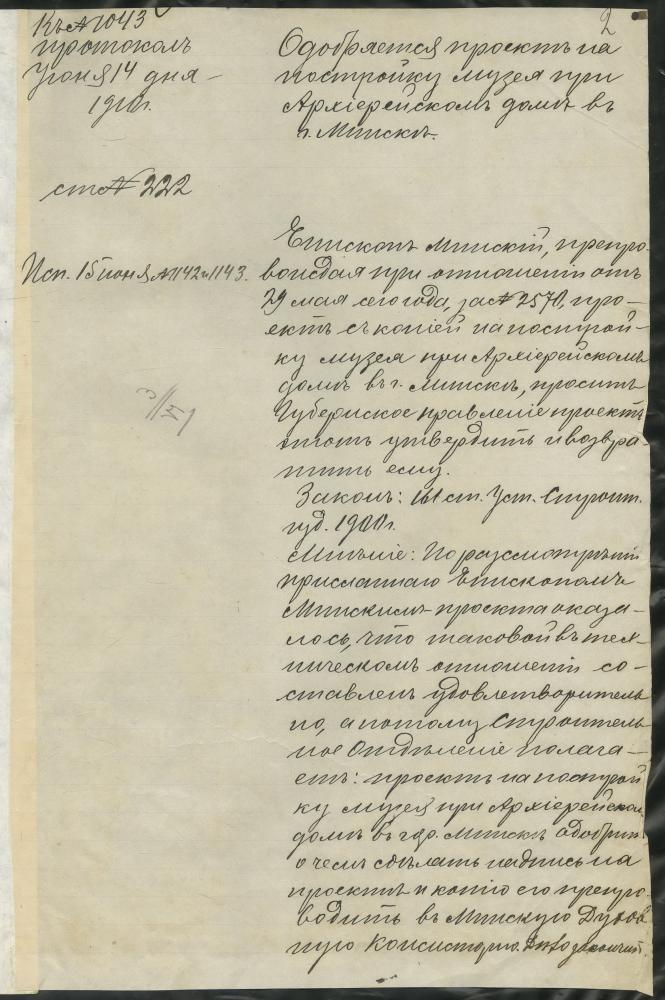 2
Къ № 1043
протоколъ
Iюня 14 дня
1910 г.
ст. № 222
Исп. 15 iюня № 1142 и 1143.
Одобряется проектъ на
постройку музея при
Архiерейскомъ домѣ въ
г. Минскѣ.
Епископъ Минскiй, препро-
вождая при отношенiи отъ
29 мая сего года, за № 2570, про-
ектъ съ копiей на построй-
ку музея при Архiерейскомъ
домѣ въ г. Минскѣ, проситъ
Губернское правленiе проектъ
этотъ утвердить и возвра-
тить ему.
Законъ: 161 ст. Уст. Строит.
изд. 1900 г.
Мнѣнiе: По разсмотрѣнiи
присланнаго Епископомъ
Минскимъ проекта оказа-
лось, что таковой въ тех-
ническомъ отношенiи со-
ставленъ удовлетворитель
но, а потому Строитель-
ное Отдѣленiе полага-
етъ: проектъ на построй
ку музея при Архiерейском
домѣ въ гор. Минскѣ одобрить
о чемъ сдѣлать надпись на
проектѣ и копiю его препро-
водить въ Минскую Духов
ную Консисторiю.